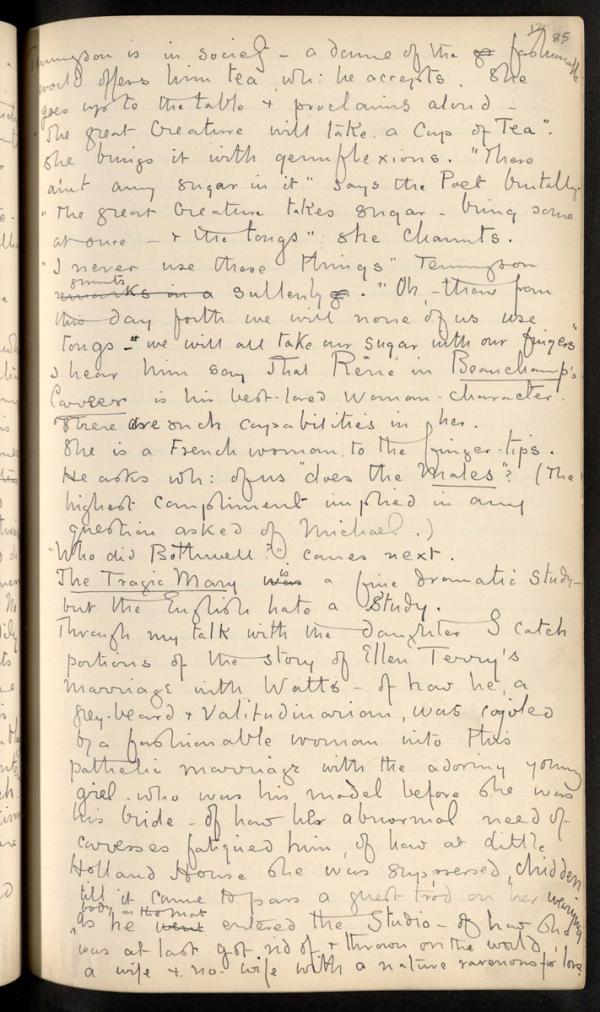 85
Tennyson is in society – a dame of the fashionable
world offers him tea wh: he accepts. She
goes up to the table & proclaims aloud –
"The great Creature will take a Cup of Tea".
She brings it with genuflexions. "There
ain't any sugar in it" says the Poet brutally.
"The great Creature takes sugar – bring some
at once – & the tongs" she chaunts.
"I never use those things" Tennyson
grunts
remarks in a sullenly. "Oh, – then from
this day forth we will none of us use
tongs – we will all take our sugar with our fingers"
I hear him say that Réné in Beauchamp's
Career is his best-loved woman-character.
There are such capabilities in her.
She is a French woman to the finger-tips.
He asks wh: of us "does the Males"? (The
highest compliment implied in any
question asked of Michael.)
"Who did Bothwell?" comes next.
The Tragic Mary was is a fine dramatic study –
but the English hate a Study.
Through my talk with the daughter I catch
portions of the story of Ellen Terry's
marriage with Watts – of how he, a
grey-beard & Valitudinarian, was cajoled
by a fashionable woman into this
pathetic marriage with the adoring young
girl who was his model before she was
his bride – of how her abnormal need of
caresses fatigued him, of how at Little
Holland House she was suppressed, chidden
till it came to pass a guest trod on her weeping
body on the mat
as he went entered the Studio – of how she
was at last got rid of & thrown on the world,
a wife & no-wife with a nature ravenous for love.